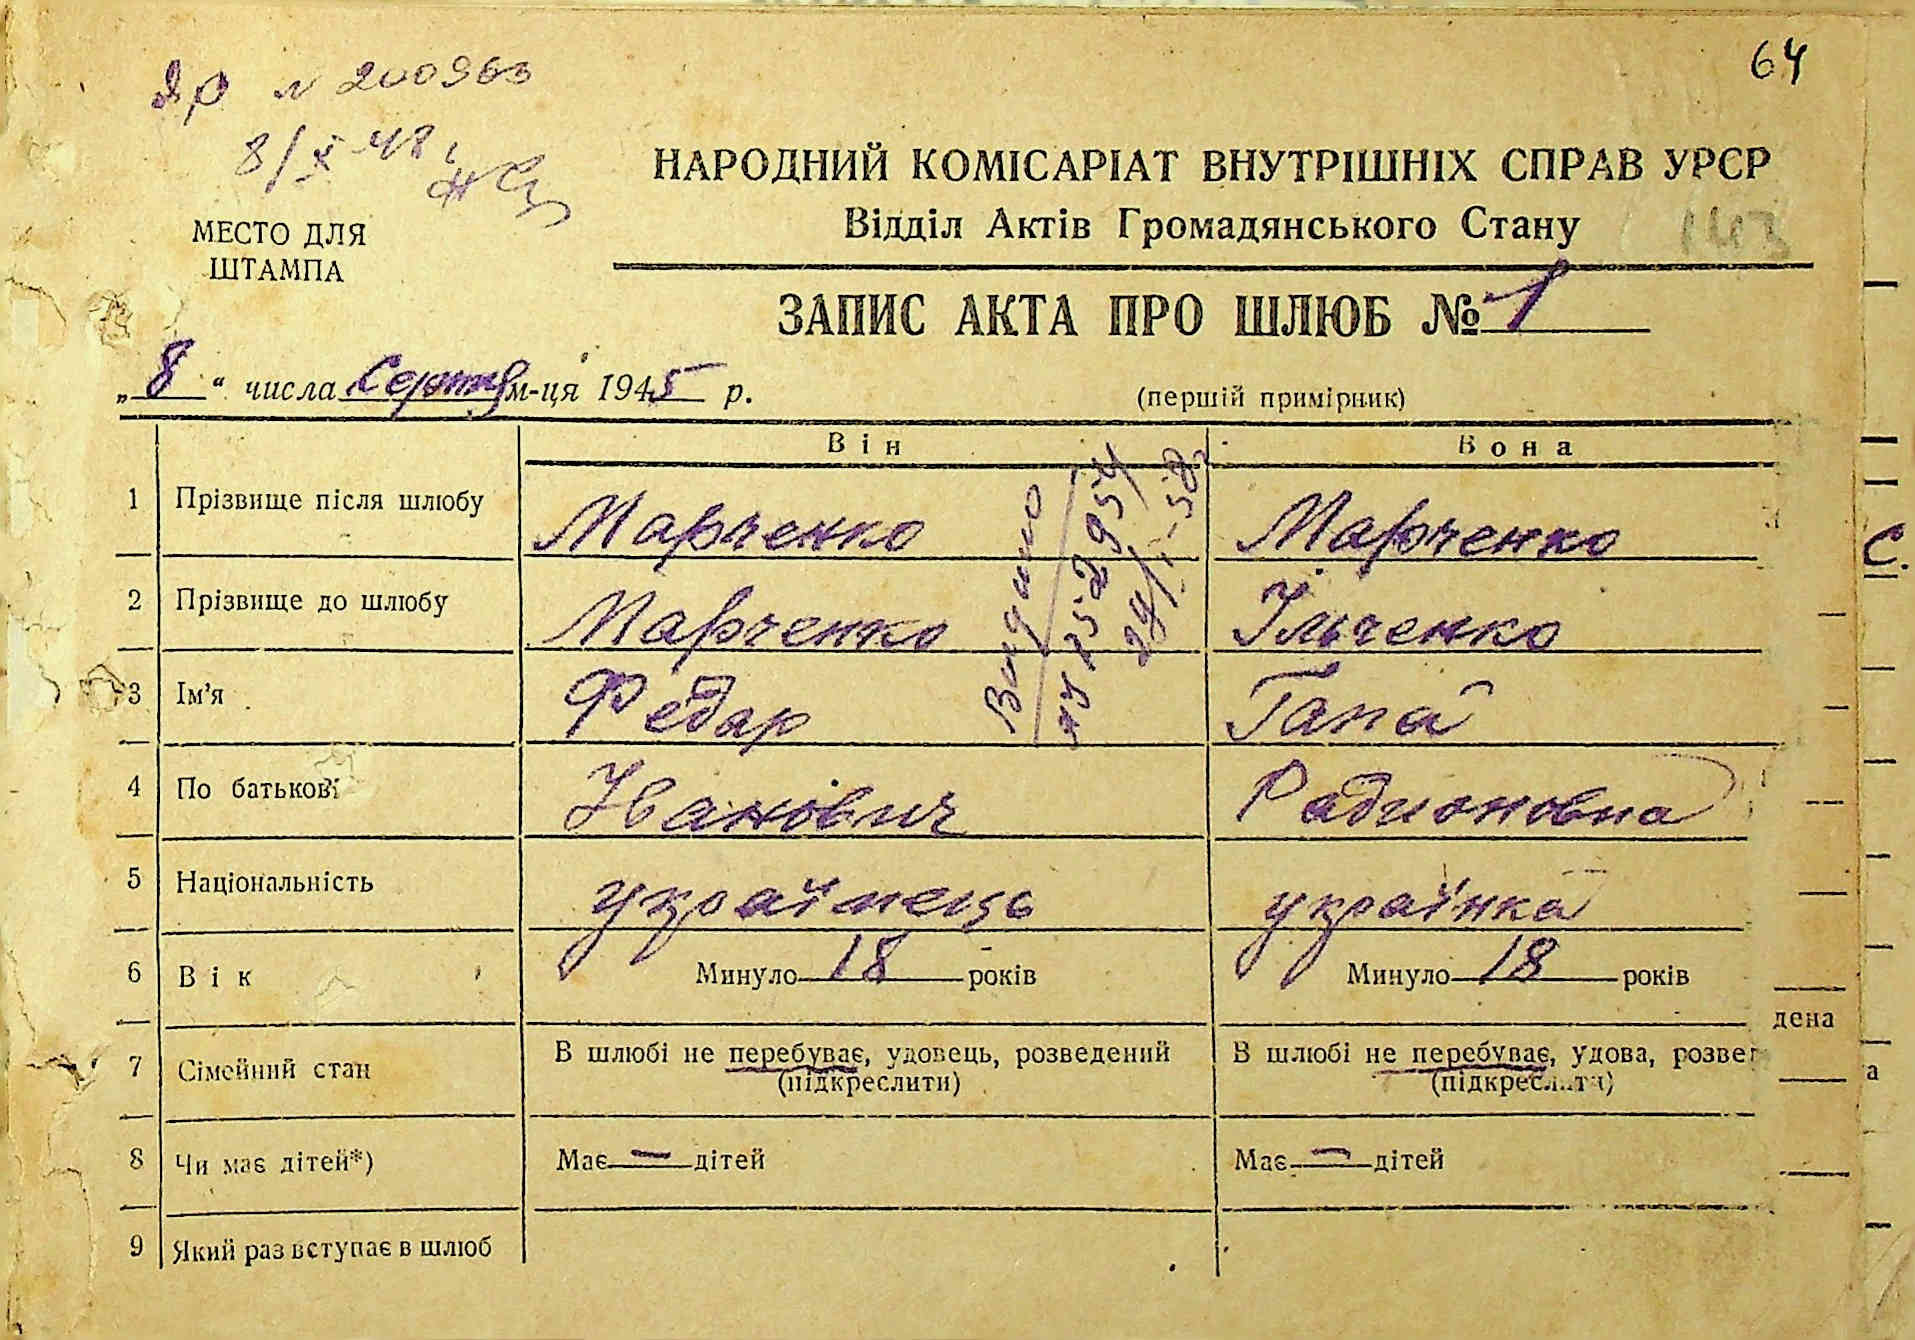 № 200963
64
8/X 48
НАРОДНИЙ КОМІСАРІАТ ВНУТРІШНІХ СПРАВ УРСР
Відділ Актів Громадянського Стану
143
МЕСТО ДЛЯ
ШТАМПА
ЗАПИС АКТА ПРО ШЛЮБ № 1
„8“ числа Серпня м-ця 1945 р.
(першій примірник)
Він
Вона
1 Прізвище після шлюбу Марченко Марченко
2 Прізвище до шлюбу Марченко Ільченко
3 Ім'я Федар Гапа
4 По батькові Іванович Радионовна
5 Національність українець українка
6 Вік Минуло 18 років Минуло 18 років
7 Сімейний стан В шлюбі не перебуває, удовець, розведений В шлюбі не перебуває, удова, розве
(підкреслити) (підкреслити)
8 Чи має дітей*) Має — дітей Має — дітей
9 Який раз вступає в шлюб
Видано
дена
а
С.